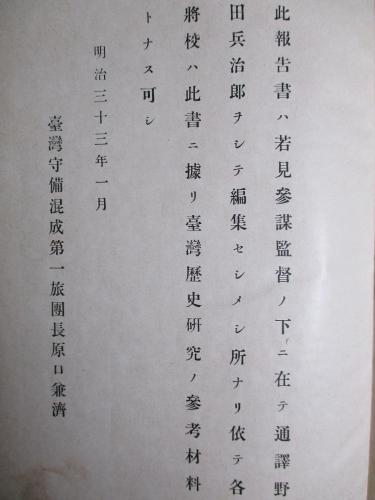 此報告書ハ若見參謀監督ノ下ニ在テ通譯野
田兵治郎ヲシテ編集セシメシ所ナリ依テ各
將校ハ此書ニ據リ臺灣歷史硏究ノ參考材料
トナス可シ
明治三十三年一月
臺灣守備混成第一旅團長原口兼濟